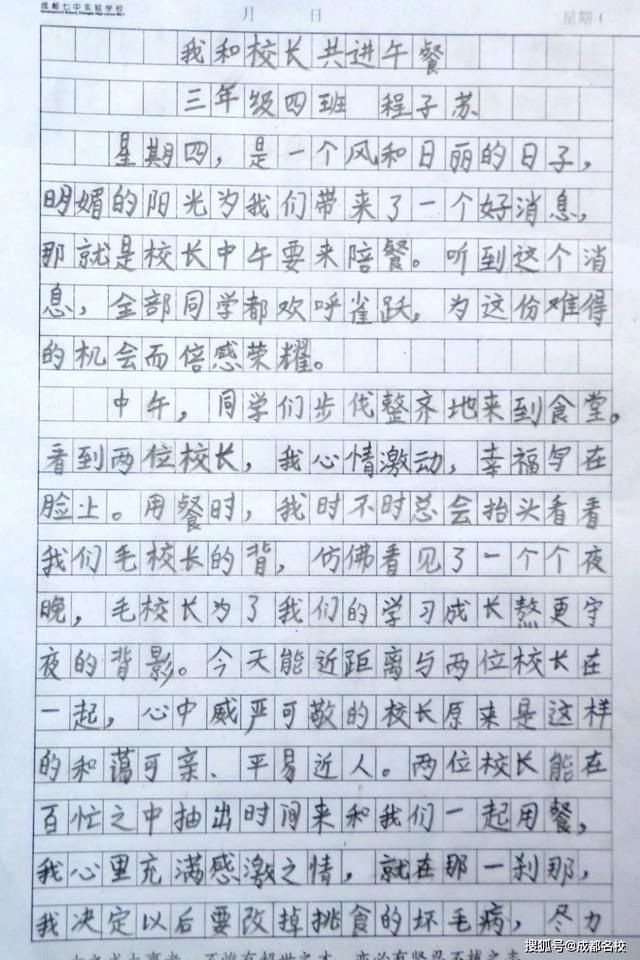 成都七中实验学校
月 日 星期(
我和校长共进午餐
三年级四班 程子苏
星期四，是一个风和日丽的日子，
明媚的阳光为我们带来了一个好消息，
那就是校长中午要来陪餐。听到这个消
息，全部同学都欢呼雀跃，为这份难得
的机会而倍感荣耀。
中午，同学们步伐整齐地来到食堂。
看到两位校长，我心情激动，幸福写在
脸上。用餐时，我时不时总会抬头看看
我们毛校长的背，仿佛看见了一个个夜
晚，毛校长为了我们的学习成长熬更守
夜的背影。今天能近距离与两位校长在
一起，心中威严可敬的校长原来是这样
的和蔼可亲、平易近人。两位校长能在
百忙之中抽出时间来和我们一起用餐，
我心里充满感激之情，就在那一刹那，
我决定以后要改掉挑食的坏毛病，尽力
搜狐号@成都名校